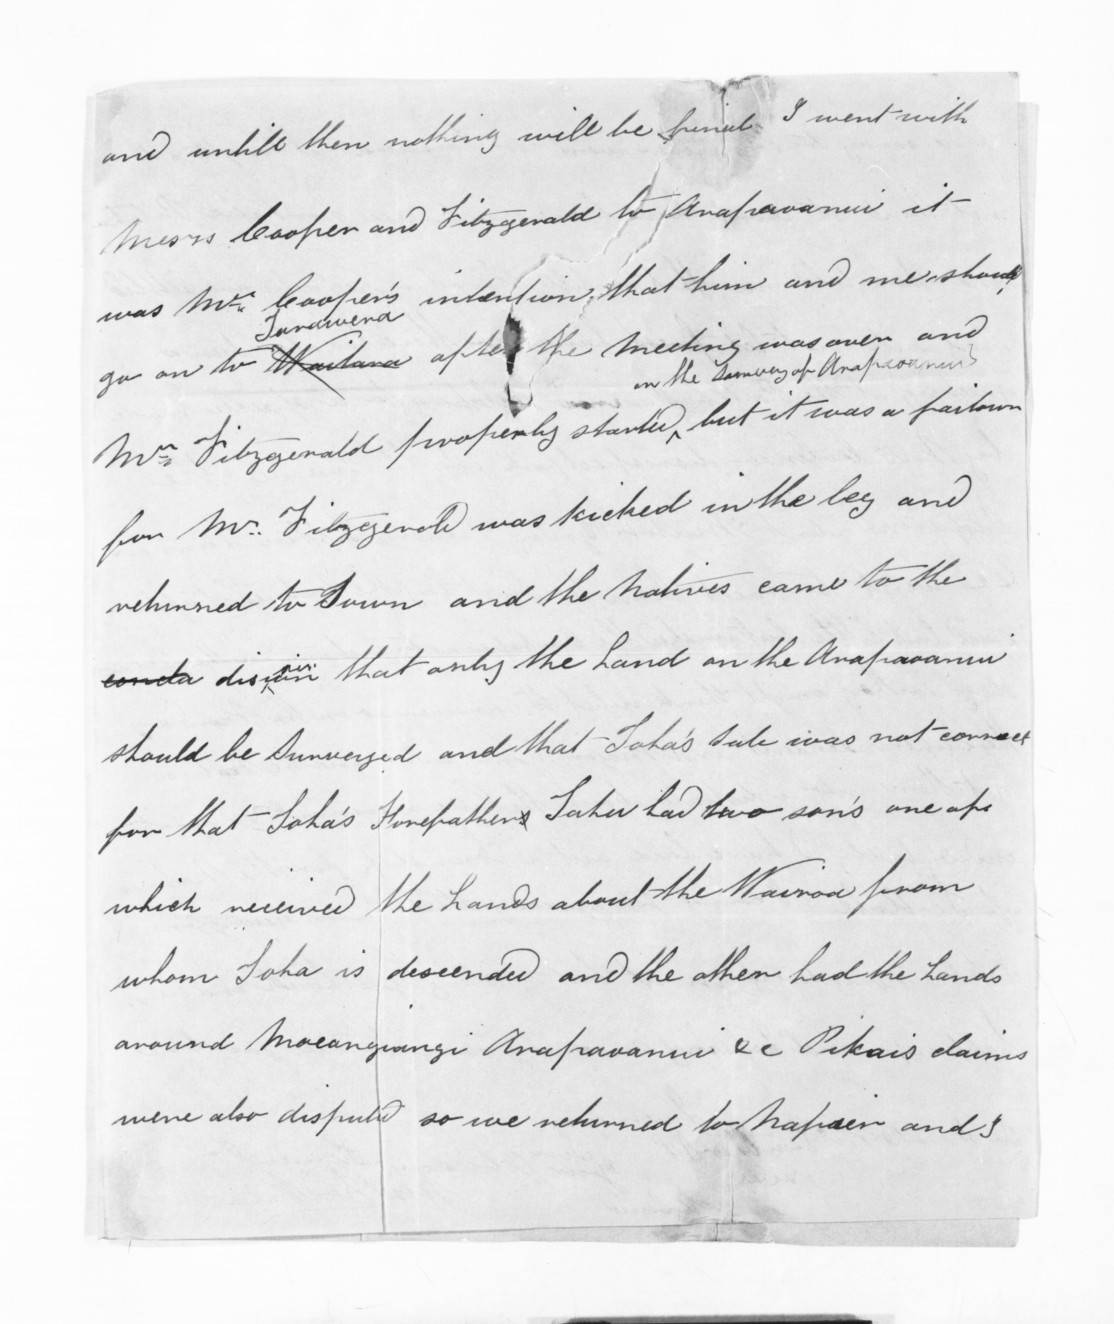 and untill then nothing will be finial I went with
Messrs Cooper and Fitzgerald to Arapaoanui it
was Mr. Cooper's intention, that him and me should
Tarawera
go on to Waitara after the meeting was over and
in the Survey of Arapaoanui
Mr. Fitzgerald properly started, but it was a failown
for Mr. Fitzgerald was kicked in the leg and
returned to Town and the Natives came to the
disision that only the Land on the Arapaoanui
should be Surveyed and that Toha's Sale was not correct
for that Toha's Forefathers Tahu had two son's one of
which received the Lands about the Wairoa from
whom Toha is descended and the other had the Lands
around Moeangiangi Arapaoanui &c Pikais claims
were also disputed so we returned to Napier and I